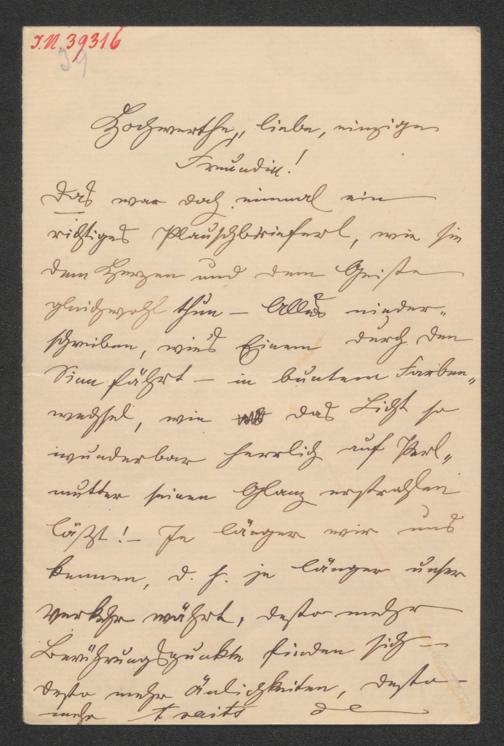 I.N. 39316
Hochwerthe, liebe, einzige
Freundin!
Das war doch einmal ein
richtiges Plauschbrieferl, wie sie
dem Herzen und dem Geiste
gleichwohl thun – Alles nieder-
schreiben, wie's Einem durch den
Sinn fährt – in buntem Farben-
wechsel, wie das Licht so
wunderbar herrlich auf Perl-
mutter seinen Glanz erstrahlen
läßt! – Je länger wir uns
kennen, d. h. je länger unser
Verkehr währt, desto mehr
Berührungspunkte finden sich –
desto mehr Änlichkeiten, desto
mehr traits de